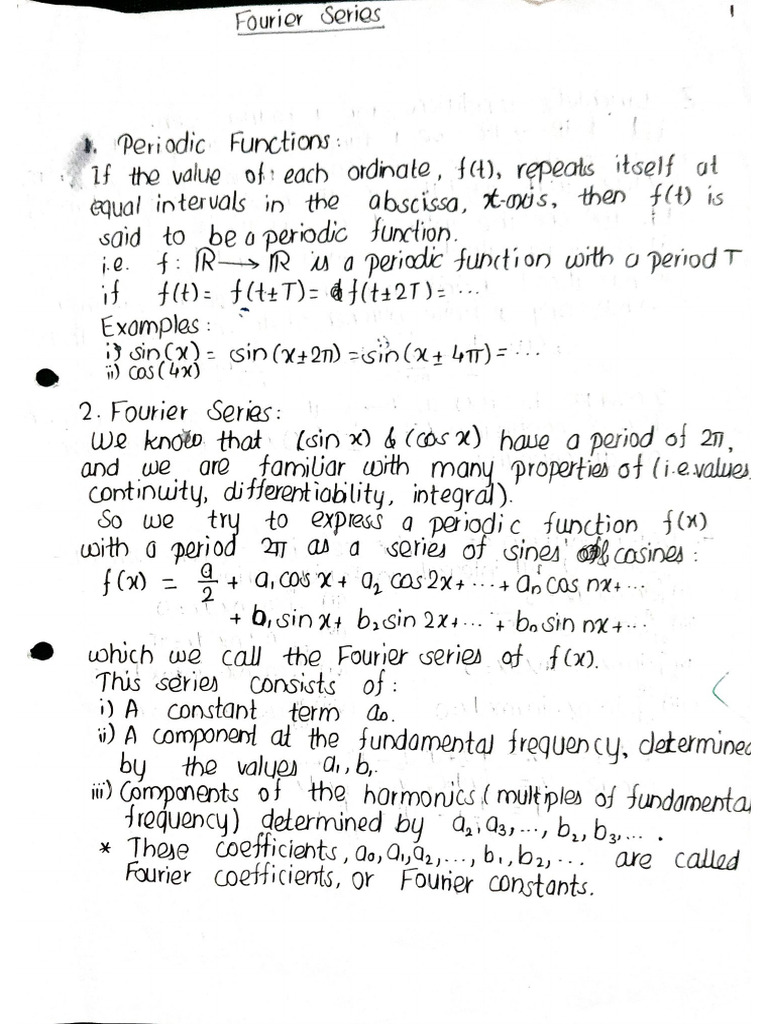 Fourier Series
1
1. Periodic Functions:
If the value of each ordinate, f(t), repeats itself at
equal intervals in the abscissa, x-axis, then f(t) is
said to be a periodic function.
i.e. f: ℝ → ℝ is a periodic function with a period T
if f(t) = f(t±T) = f(t±2T) = ...
Examples:
i) sin(x) = sin(x±2π) = sin(x±4π) = ...
ii) cos(4x)
2. Fourier Series:
We know that (sin x) & (cos x) have a period of 2π,
and we are familiar with many properties of (i.e values
continuity, differentiability, integral).
So we try to express a periodic function f(x)
with a period 2π as a series of sines & cosines:
f(x) = a/2 + a₁cos x + a₂ cos 2x + ... + aₙ cos nx + ...
+ b₁ sin x + b₂ sin 2x + ... + bₙ sin nx + ...
which we call the Fourier series of f(x).
This series consists of:
i) A constant term a₀.
ii) A component at the fundamental frequency, determined
by the values a₁, b₁.
iii) Components of the harmonics (multiples of fundamenta
frequency) determined by a₂, a₃, ..., b₂, b₃, ... .
* These coefficients, a₀, a₁, a₂, ..., b₁, b₂, ... are called
Fourier coefficients, or Fourier constants.